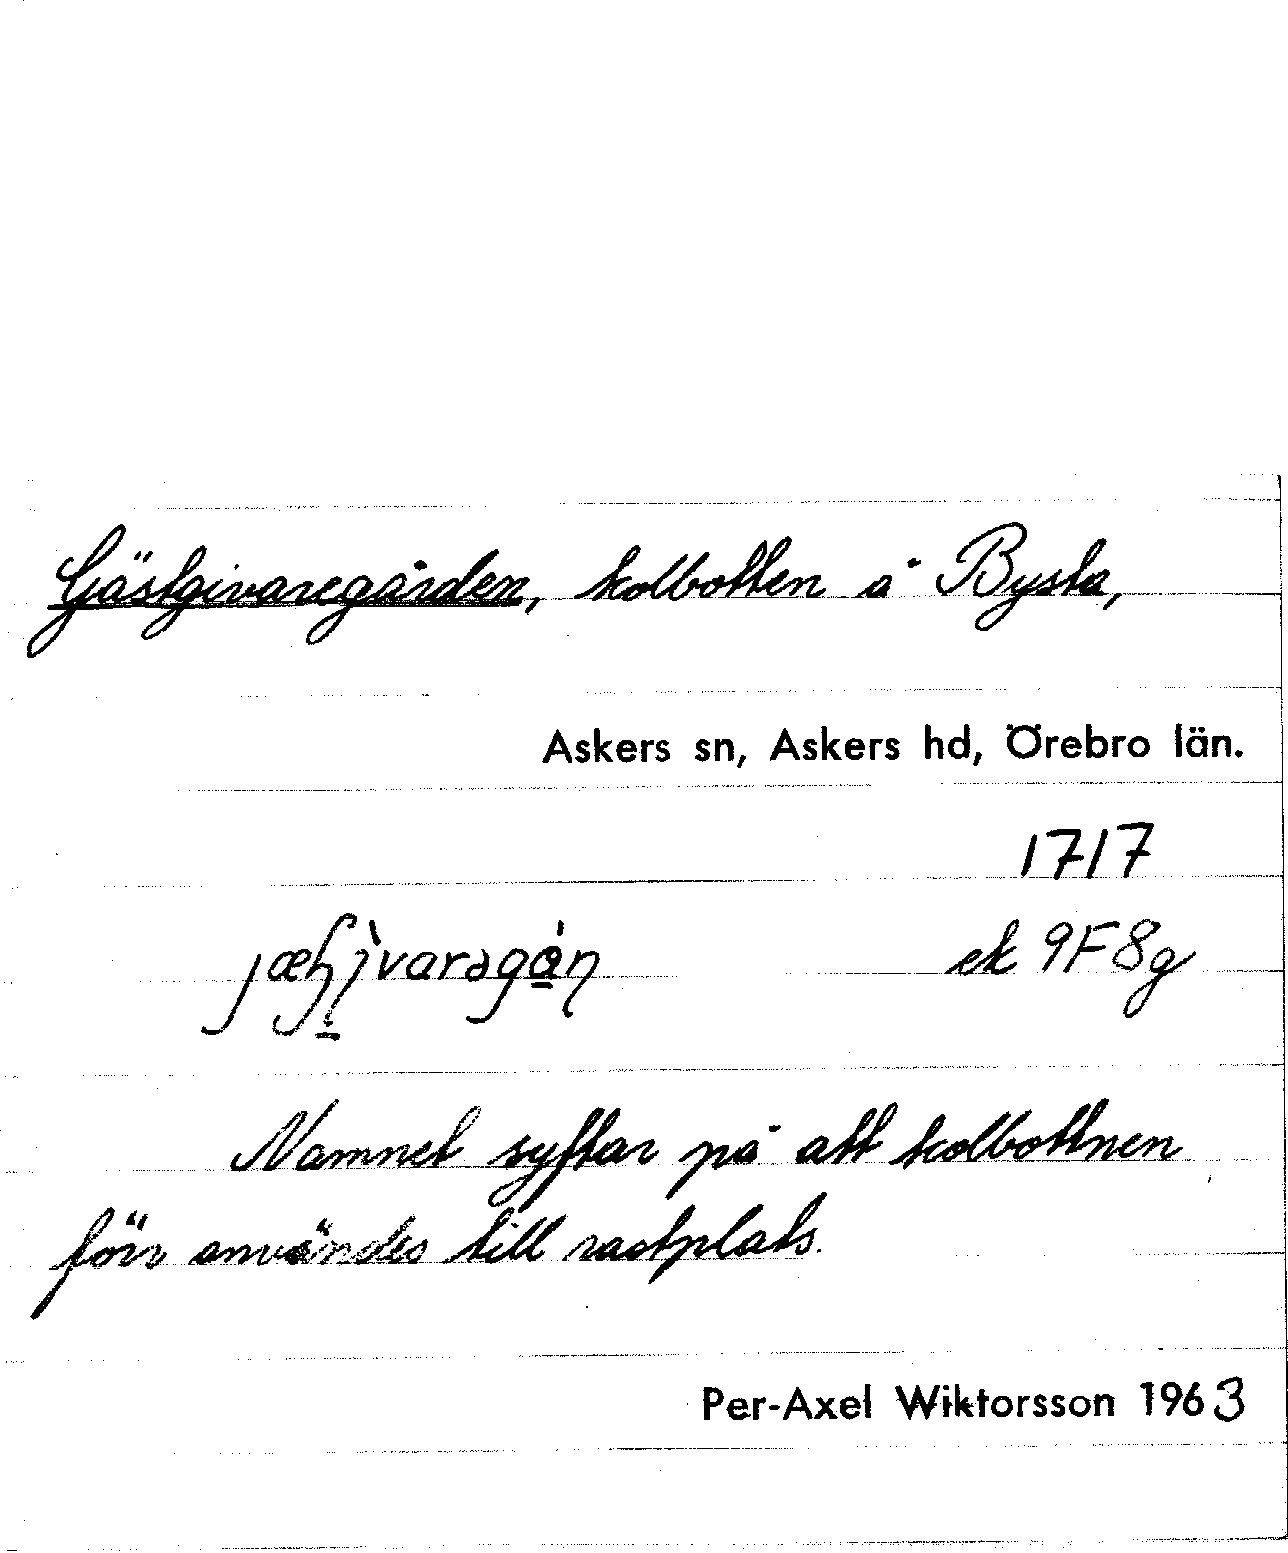 Gästgivaregården, kolbotten å Bysta,
Askers sn, Askers hd, Örebro län.
1717
ek 9F8g
Namnet syftar på att kolbottnen
förr användes till rastplats.
Per-Axel Wiktorsson 1963